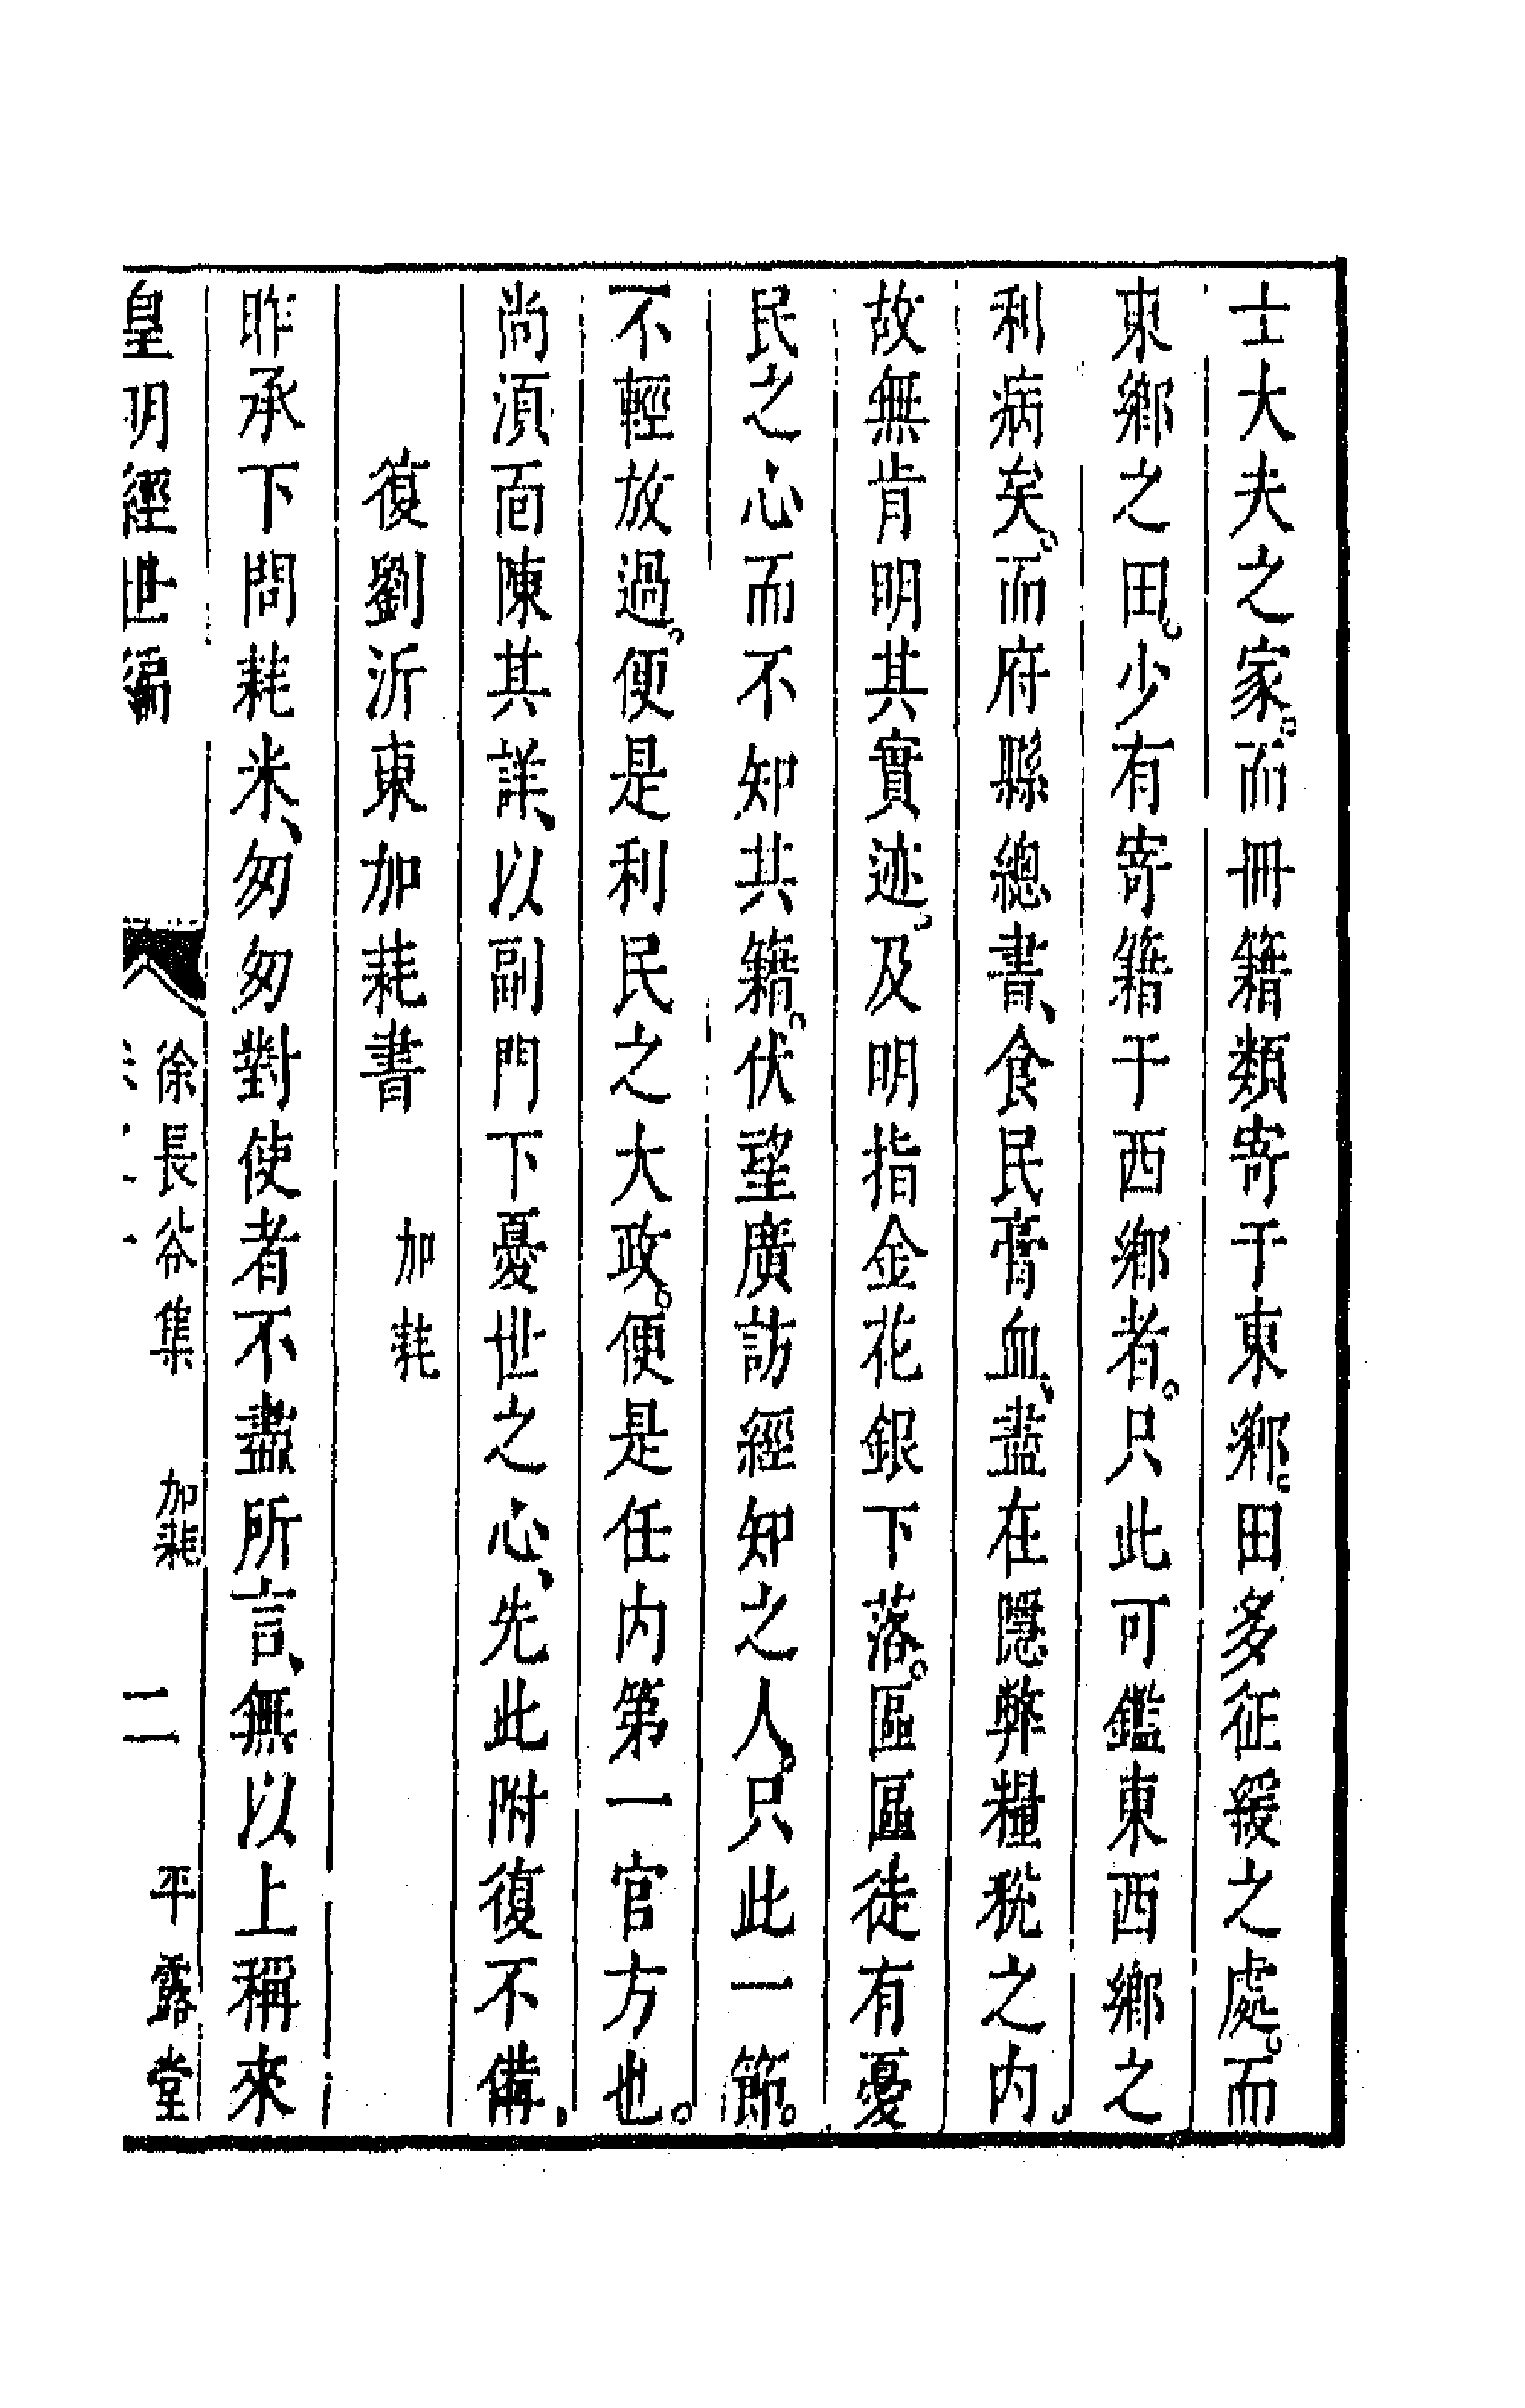 士大夫之家。而冊籍類寄于東鄉。田多征緩之處。而
東鄉之田。少有寄籍于西鄉者。只此可鑑東西鄉之
利病矣。而府縣總書、食民膏血、盡在隱弊糧稅之内。
故無肯明其實迹。及明指金花銀下落。區區徒有憂
民之心而不知其籍。伏望廣訪經知之人。只此一節。
不輕放過。便是利民之大政。便是任内第一官方也。
尚湏面陳其詳、以副門下憂世之心、先此附復不備、
復劉沂東加耗書 加耗
昨承下問耗米、匆匆對使者不盡所言、無以上稱來
皇明經世編 徐長谷集 加耗 二 平露堂